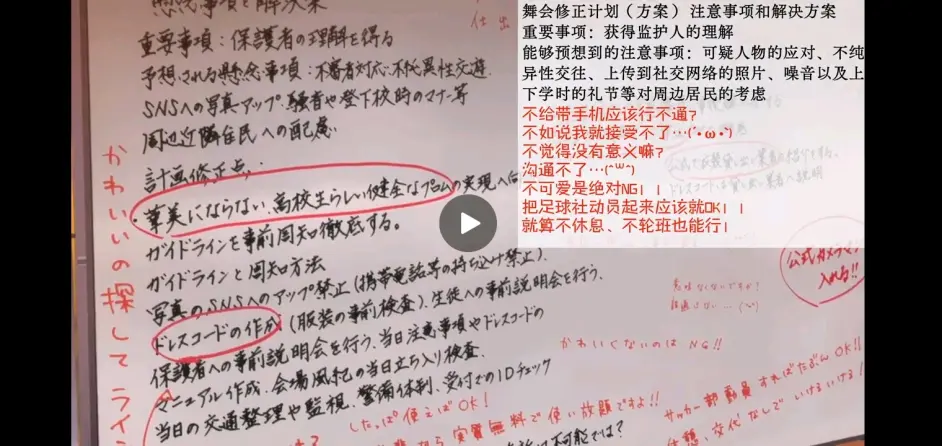 懸念事項と解決案
重要事項：保護者の理解を得る
予想される懸念事項：不審者対応、不純異性交遊、
SNSへの写真アップ、騒音や登下校時のマナー等
周辺近隣住民への配慮
計画修正点；
・華美にならない、高校生らしい健全なプロムの実現へ向
ガイドラインを事前周知徹底する。
ガイドラインと周知方法
写真のSNSへのアップ禁止(携帯電話等の持ち込み禁止)、
ドレスコードの作成(服装の事前検査)、生徒への事前説明会を行う、
保護者への事前説明会を行う、当日注意事項やドレスコードの
マニュアル作成、会場風紀の当日立ち入り検査、
当日の交通整理や監視、警備体制、受付でのIDチェック
かわいいの探してライン
仕出
舞会修正计划（方案）注意事项和解决方案
重要事项：获得监护人的理解
能够预想到的注意事项：可疑人物的应对、不纯
异性交往、上传到社交网络的照片、噪音以及上
下学时的礼节等对周边居民的考虑
不给带手机应该行不通？
不如说我就接受不了…(´•ω•`)
不觉得没有意义嘛？
沟通不了…(˘ω˘)
不可爱是绝对NG！！
把足球社动员起来应该就OK！！
就算不休息、不轮班也能行！
公式カメラ
入れる!!
意味なくないですか!
かわいくないのは NG!!
したっぱ使えばOK!
なら実質無料で使い放題ですよ!!
サッカー部動員すればたぶんOK!!
休憩、交代なしでいけるいける!
不可能では?